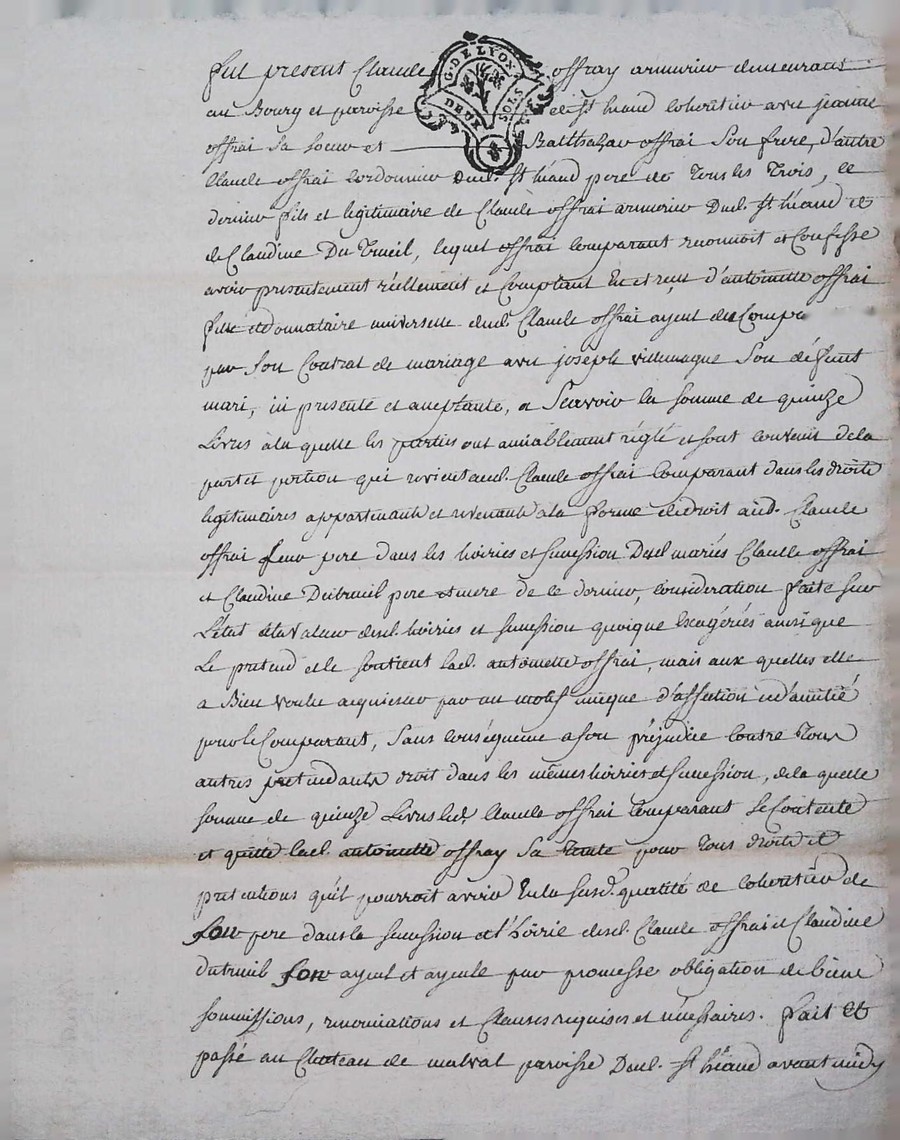 fut present Claude offray armurier demeurant
G. DE LYON
DEUX SOLS
au Bourg et paroisse de St héand coheritier avec jeanne
offrai sa soeur et Balthazar offrai son frere, d'autre
Claude offrai cordonnier dud. St héand pere de Tous les Trois, ce
dernier fils et legitimaire de Claude offrai armurier Dud. St héand et
de Claudine Du Treuil, lequel offrai comparant reconnoit et Confesse
avoir presentement réellement et Comptant eu et reçu d'antoinette offrai
fille et donnataire universelle dud. Claude offrai ayeul du Compt
par son Contrat de mariage avec joseph villemagne son défunt
mari, ici presente et acceptante, a Scavoir la somme de quinze
Livres à la quelle les parties ont amiablement réglé et sont convenu de la
part et portion qui revient aud. Claude offrai Comparant dans les droits
legitimaires appartenants et revenants a la forme de droit aud. Claude
offrai son pere dans les hoiries et succession Desd. mariés Claude offrai
et Claudine Dutreuil pere et mere de ce dernier, consideration faite sur
L'état et la valeur desd. hoiries et succession quoique Exagérés ainsi que
Le pretend et le soutient lad. antoinette offrai, mais aux quelles elle
a Bien voulu acquiescer par un motif unique d'affection et d'amitié
pour le Comparant, sans conséquence a son préjudice contre Tous
autres prétendants droit dans les mêmes hoiries et succession, de la quelle
somme de quinze Livres led. Claude offrai Comparant se Contente
et quitte lad. antoinette offray sa Tante pour Tous droits et
pretentions qu'il pourroit avoir En la susd. qualité de coheritier de
son pere dans la succession et l'hoirie desd. Claude offrai et Claudine
dutreuil son ayeul et ayeule par promesse obligation de biens
soumissions, renonciations et Clauses requises et nécessaires. fait et
passé au Chateau de malval paroisse Dud. St héand avant midy